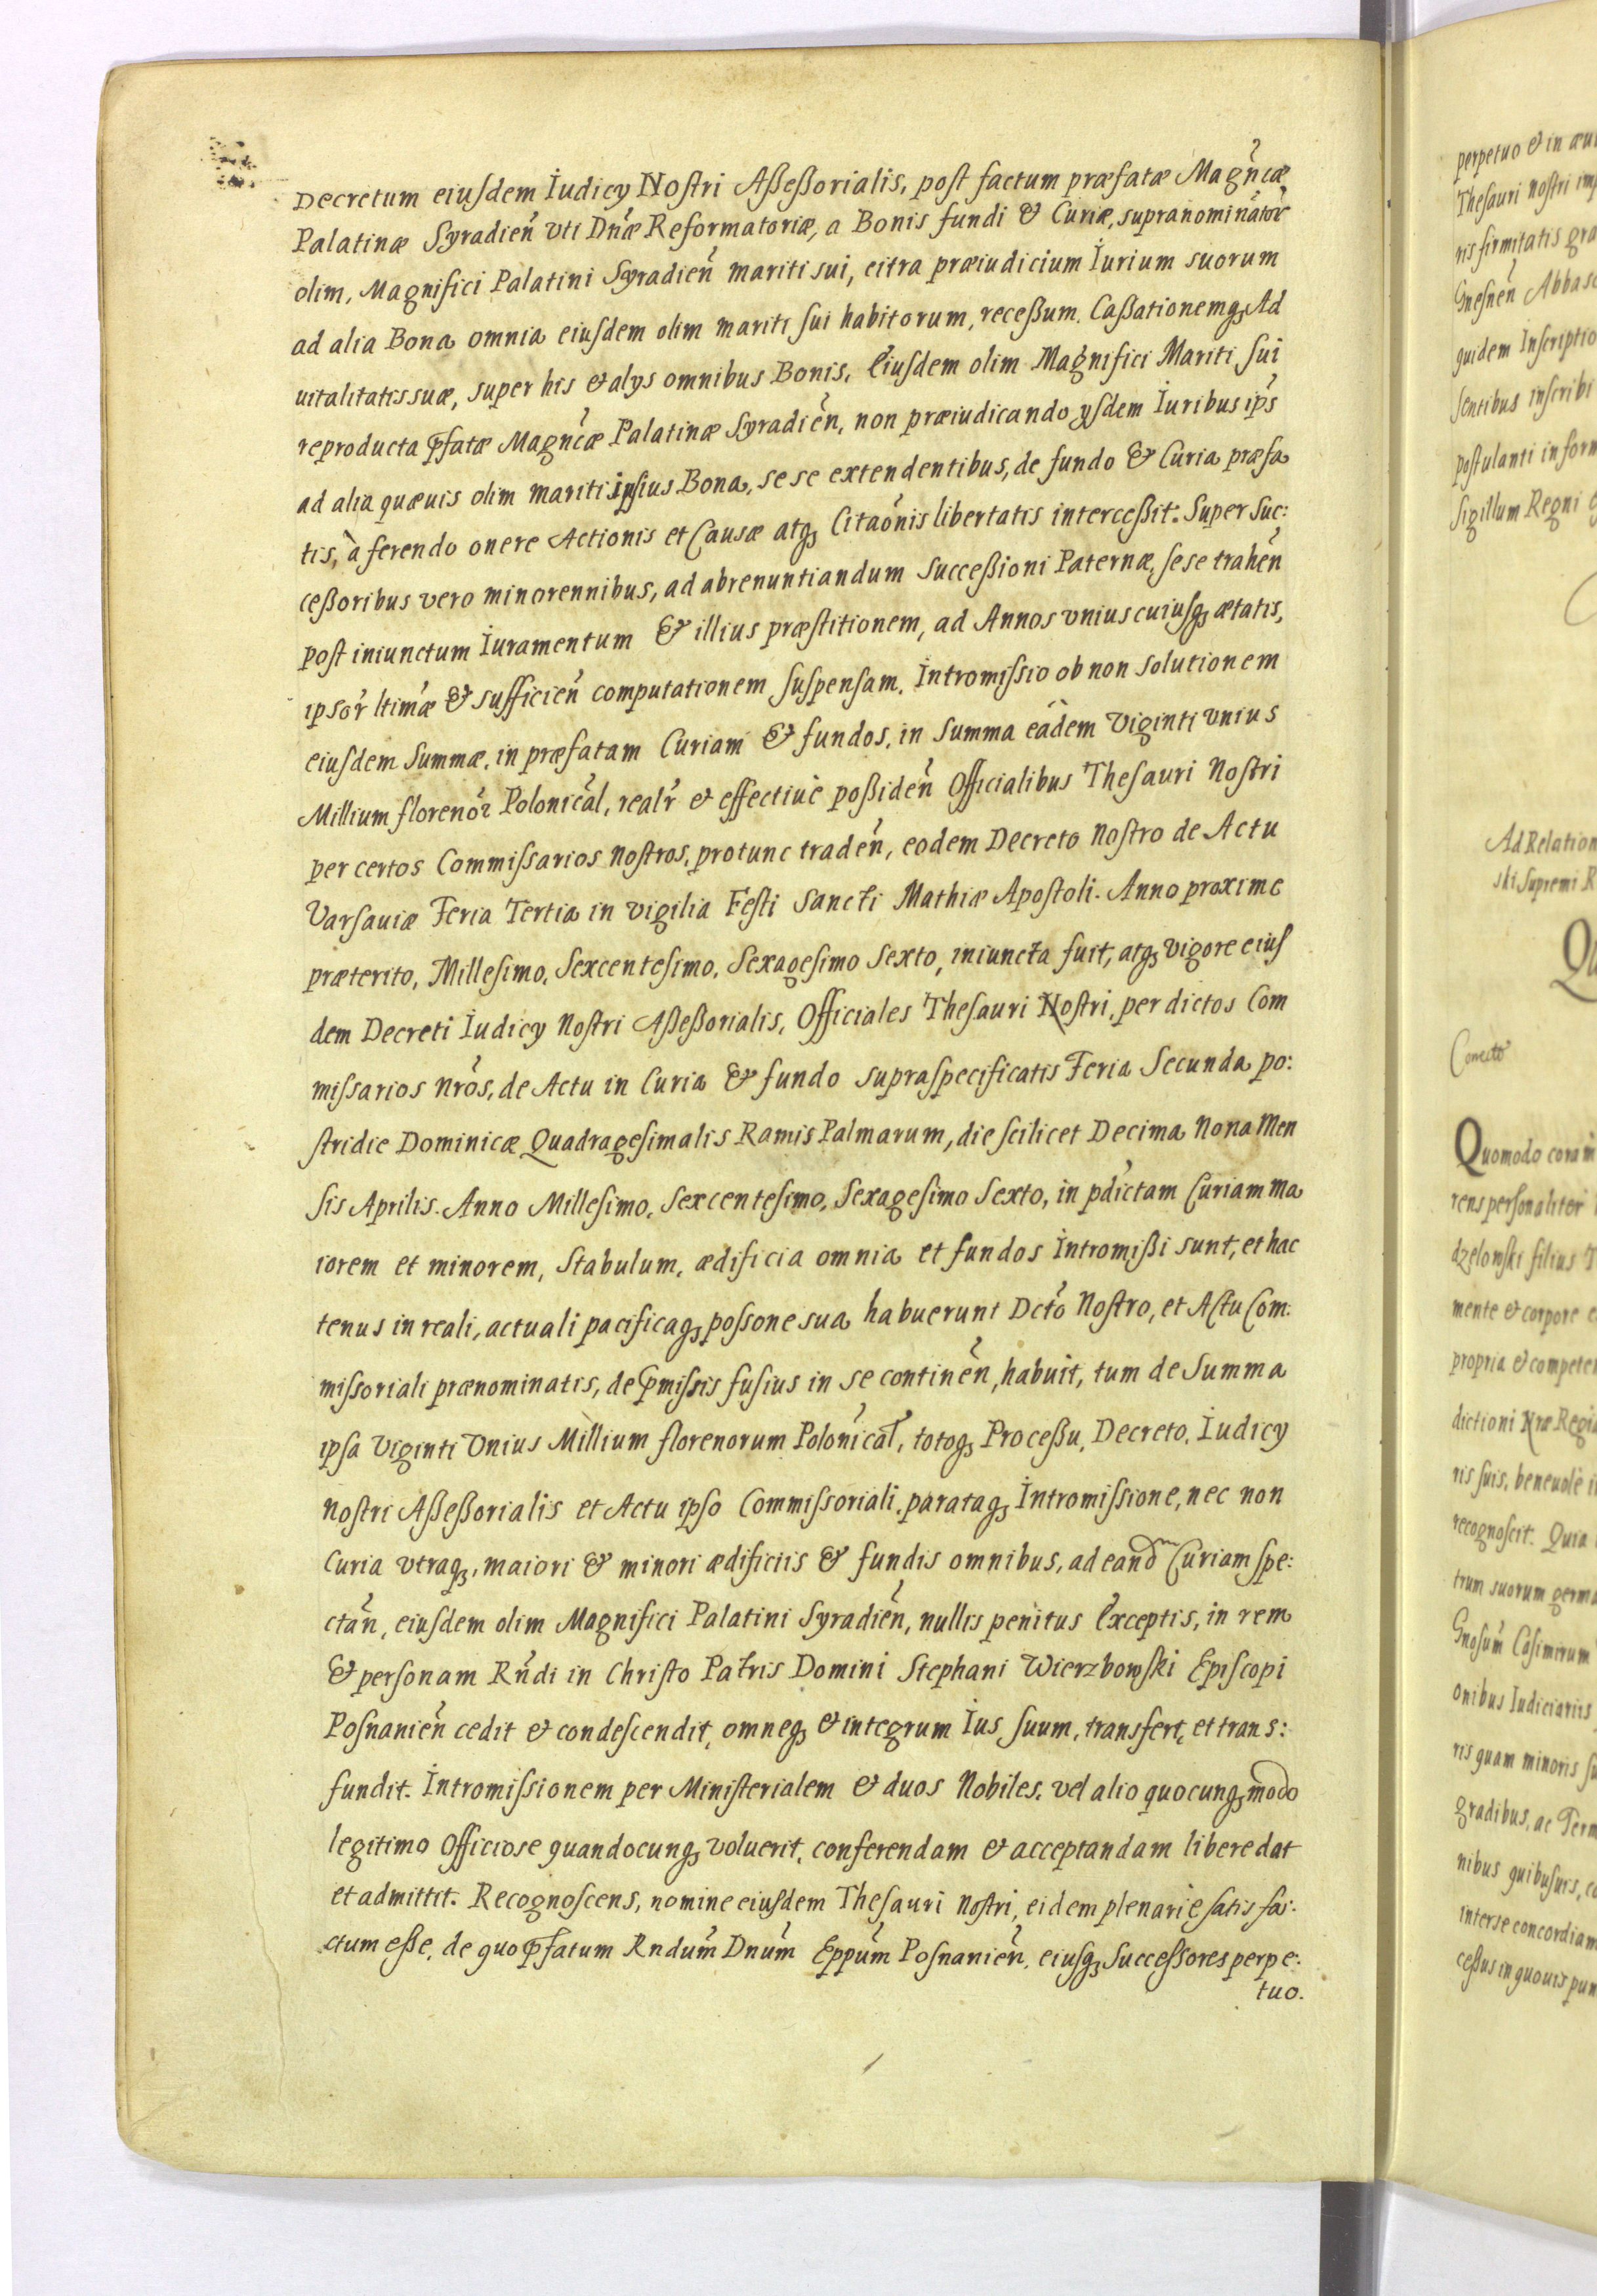 Decretum eiusdem Iudicy Nostri Aßeßorialis, post factum præfatæ Magn̄cæ
Palatinæ Syradien̄ vti Dn̄æ Reformatoriæ, a Bonis fundi & Curiæ, supranominator̄
olim, Magnifici Palatini Syradien̄ mariti sui, citra præiudicium Iurium suorum
ad alia Bona omnia eiusdem olim mariti sui habitorum, receßum. Caßationemq; Ad
uitalitatis suæ, super his et alys omnibus Bonis, Eiusdem olim Magnifici Mariti sui
reproducta p̄fatæ Magn̄cæ Palatinæ Syradien̄, non præiudicando ysdem Iuribus ips̄
ad alia quæuis olim mariti ipsius Bona, sese extendentibus, de fundo & Curia præfa
tis, à ferendo onere Actionis et Causæ atq; Citaōnis libertatis interceßit. Super Suc:
ceßoribus vero minorennibus, ad abrenuntiandum Succeßioni Paternæ, sese trahen̄
post iniunctum Iuramentum & illius præstitionem, ad Annos vniuscuiusq; ætatis,
ipsor̄ ltimæ & sufficien̄ computationem suspensam. Intromissio ob non solutionem
eiusdem Summæ, in præfatam Curiam & fundos, in Summa eâdem Viginti vnius
Millium florenor̄ Polonical̄, realr̄ et effectiuè poßiden̄ Officialibus Thesauri Nostri
per certos Commissarios Nostros, protunc traden̄, eodem Decreto Nostro de Actu
Varsauiæ Feria Tertia in vigilia Festi Sancti Mathiæ Apostoli. Anno proxime
præterito, Millesimo, Sexcentesimo, Sexagesimo Sexto, iniuncta fuit, atq; vigore eius
dem Decreti Iudicy Nostri Aßeßorialis, Officiales Thesauri Nostri, per dictos Com
missarios Nrōs, de Actu in Curia & fundo supraspecificatis Feria Secunda po:
stridie Dominicæ Quadragesimalis Ramis Palmarum, die scilicet Decima Nona Men
sis Aprilis. Anno Millesimo, Sexcentesimo, Sexagesimo Sexto, in pdictam Curiam ma
iorem et minorem, Stabulum, ædificia omnia et fundos Intromißi sunt, et hac
tenus in reali, actuali pacificaq; possone sua habuerunt Dctō Nostro, et Actu Com:
missoriali prænominatis, de p̄missis fusius in se continen̄, habuit, tum de Summa
ipsa Viginti Vnius Millium florenorum Polonical̄, totoq; Proceßu, Decreto, Iudicy
Nostri Aßeßorialis et Actu ipso Commissoriali, parataq; Intromissione, nec non
Curia vtraq;, maiori & minori ædificiis & fundis omnibus, ad eand̄m Curiam spe:
ctan̄, eiusdem olim Magnifici Palatini Syradien̄, nullis penitus Exceptis, in rem
& personam Rn̄di in Christo Patris Domini Stephani Wierzbowski Episcopi
Posnanien̄ cedit et condescendit, omneq; et integrum Ius suum, transfert, et trans:
fundit. Intromissionem per Ministerialem & duos Nobiles, vel alio quocunq; modo
legitimo Officiose quandocunq; voluerit, conferendam et acceptandam libere dat
et admittit. Recognoscens, nomine eiusdem Thesauri Nostri, eidem plenariè satisfa:
ctum eße, de quo p̄fatum Rndum̄ Dnum̄ Eppum̄ Posnanien̄, eiusq; Successores perpe:
tuo.
perpetuo & in æu
Thesauri Nostri imp
ris firmitatis gra
Gnesnen̄ Abbas
quidem Inscriptio
sentibus inscribi
postulanti in form
Sigillum Regni
Ad Relation
ski Supremi R
Qu
Quomodo coram
rens personaliter
dzelowski filius T
mente & corpore
propria & compete
dictioni Nræ Regi
ris suis, beneuolè i
recognoscit. Quia
trum suorum germa
Gnosum̄ Casimirum
onibus Iudiciariis
ris quam minoris su
gradibus, ac Term
nibus quibusuis, c
interse concordiam
ceßus in quouis pun